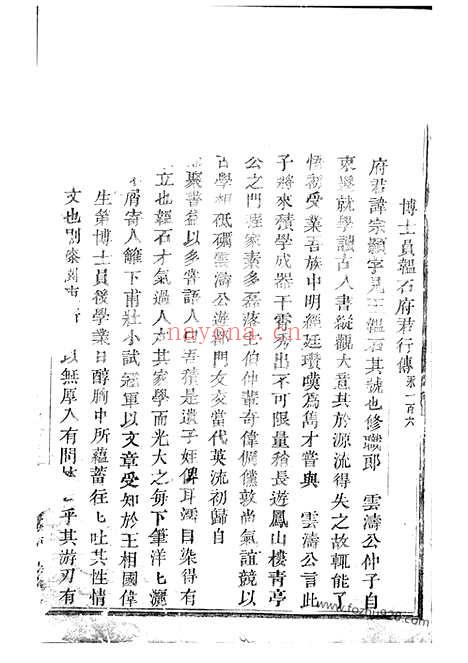 博士員韞石府君行傳 禾一百六
府君諱宗顥字見三韞石其號也修職郎 雲濤公仲子自
束髮就學讀古人書縱觀大意其於源流得失之故輒能了
悟初受業吾族中明經廷瓚嘆爲雋才嘗與 雲濤公言此
子將來積學成器干雲霄出不可限量稍長遊鳳山樓青亭
公之門程家素多磊落士伯仲輩奇偉倜儻敦尚氣誼競以
古學相砥礪雲濤公遊都門友交當代英流初歸自
聚書益以多嘗語人曰吾積是遺子姪俾耳濡目染得有
立也韞石才氣過人亦其家學而光大之每下筆洋七灑
屑寄人籬下甫壯小試冠軍以文章受知於王相國偉
生第博士員後學業日醇胸中所蘊蓄往七吐其性情
文也 以無厚入有間 乎其游刃有
nayona.cn
www.fozhu920.com